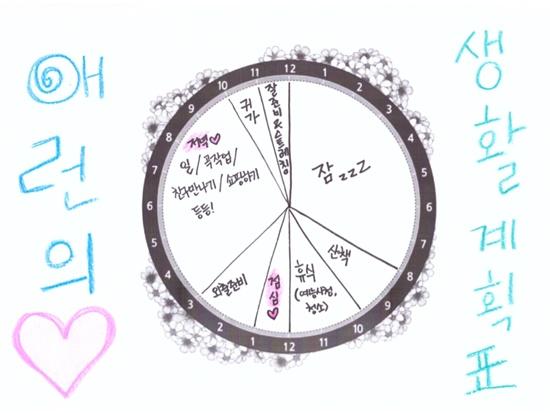 애런의
생활계획표
12 1 2 3 4 5 6 7 8 9 10 11 12 1 2 3 4 5 6 7 8 9 10 11
잠 zzZ
산책
휴식
(예능시청,
청소)
점심♡
외출준비
저녁♡
일/곡작업/
친구만나기/쇼핑하기
등등!
귀가
잘준비&스트레칭